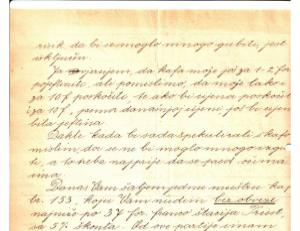 risik, da bi se moglo mnogo gubiti, jest
isključen.
Ja, da kafa može još za 1-2 for.
ali pomislimo, da može lako i
za 10 f. poskočiti, te ako bi cijena poskočila
za 10 f. prema današnjoj cijeni, još bi cijena
bila jeftina
Dakle kada bi sada spekulirali s kafom
mislim, da se ne bi moglo mnogo
a to treba najprije da se pred očima
ima.
Danas Vam šaljem jednu muštru kafe
br. 133, koju Vam nudim bez obveze
najmanje po 37 for. franco Triest,
sa 5% škonta. Od ove partije imam